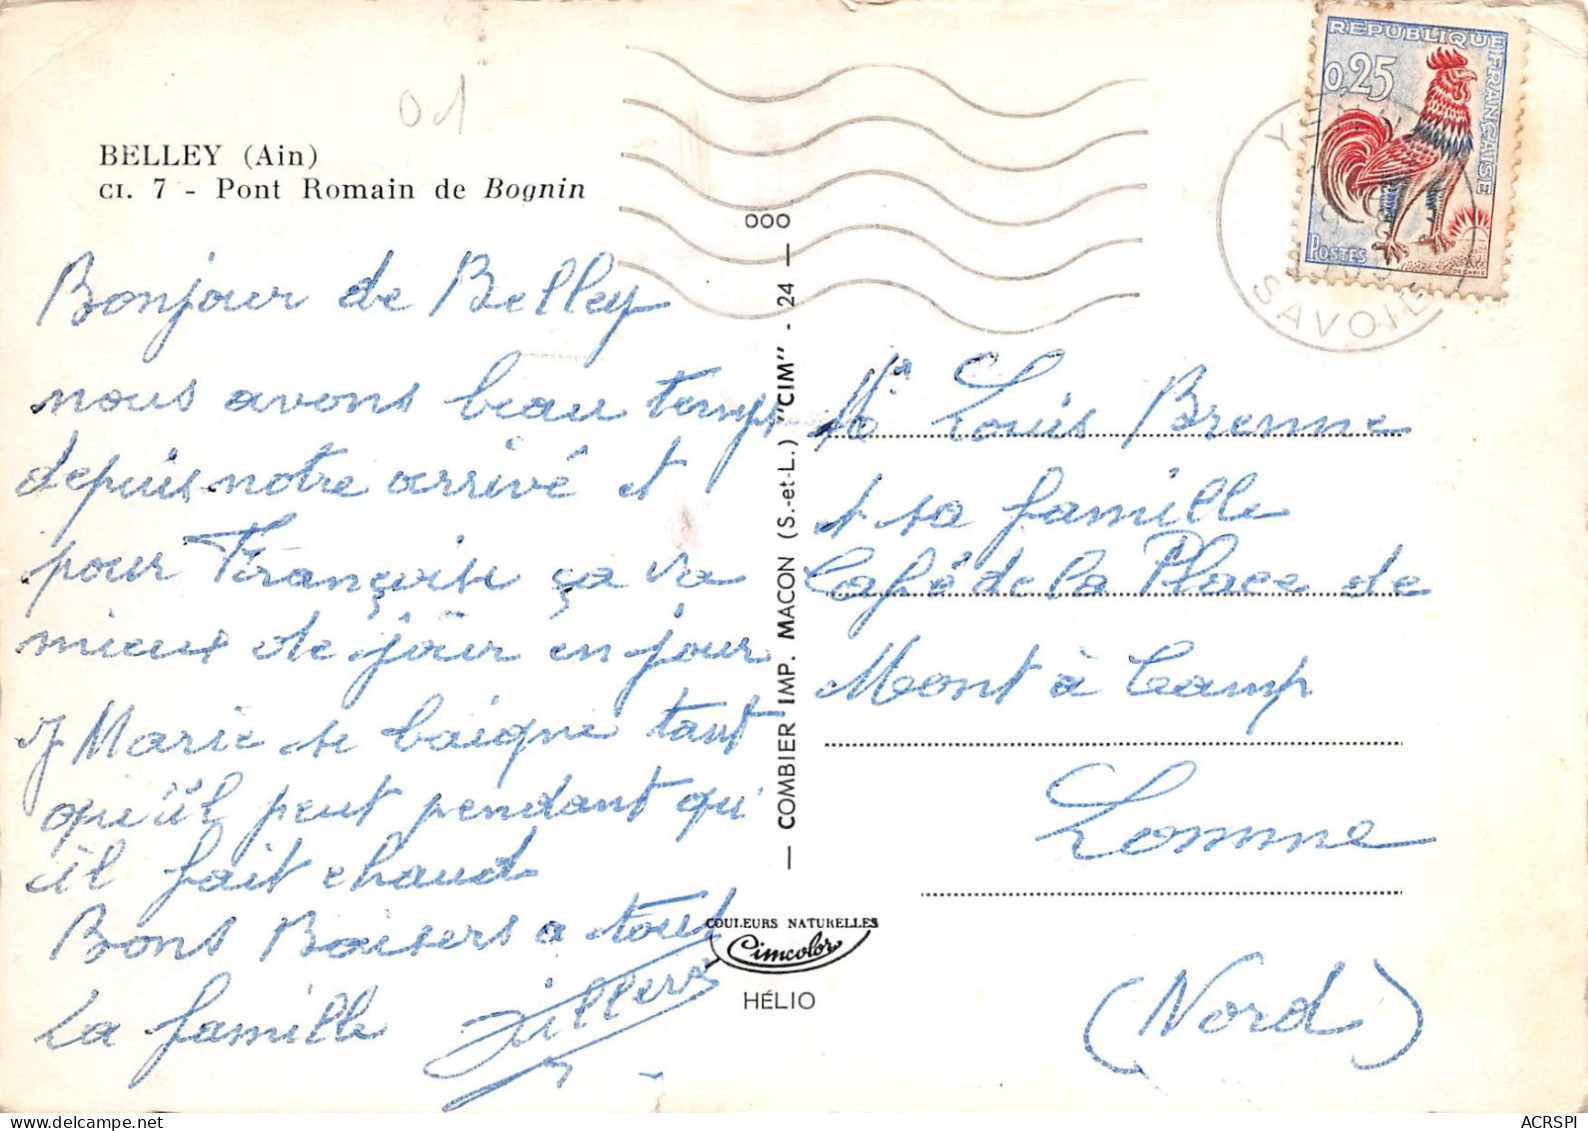 01
BELLEY (Ain)
CI. 7 - Pont Romain de Bognin
Bonjour de Belley
nous avons beau temps
depuis notre arrivé et
pour Françoise ça va
mieux de jour en jour
J Marie se baigne tant
qu'il peut pendant qu'
il fait chaud
Bons Baisers a tout
La famille
000
— COMBIER IMP. MACON (S.-et-L.) "CIM" - 24 —
COULEURS NATURELLES
Cimcolor
HÉLIO
REPUBLIQUE FRANÇAISE
0,25
POSTES
SAVOIE
Mr Louis Brenne
et sa famille
Café de la Place de
Mont à Camp
Lomme
(Nord)
ACRSPI